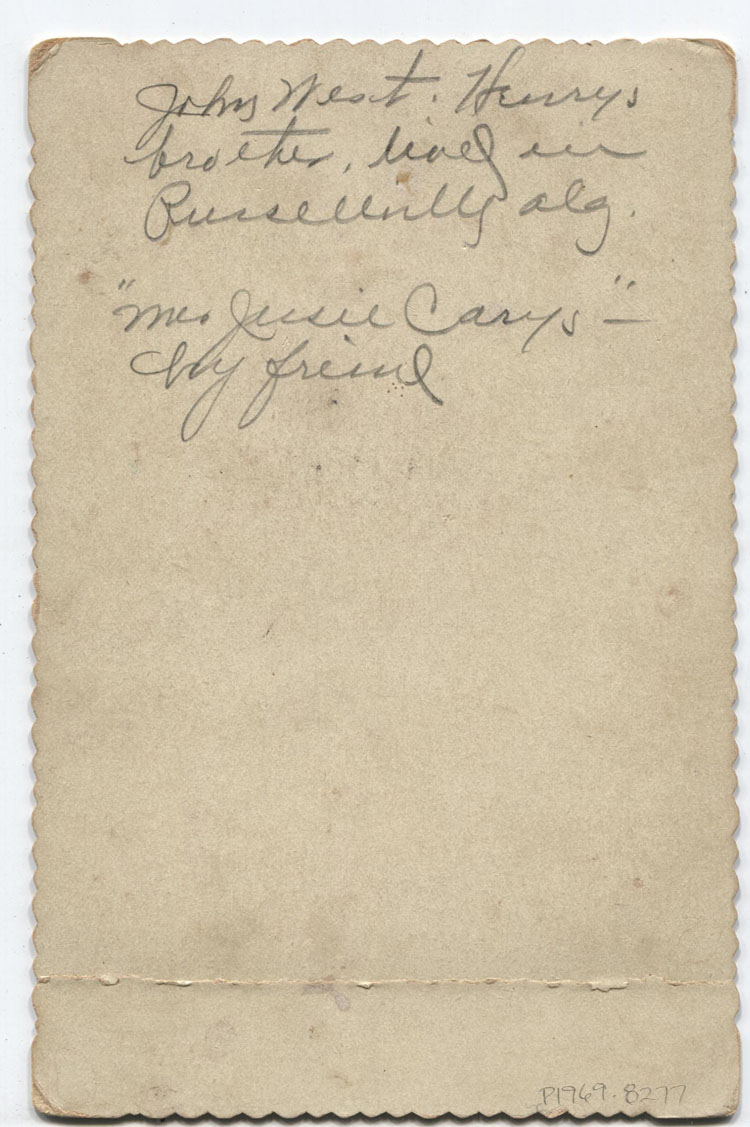 John West. Henrys
brother, lived in
Russellville ala.
"Mrs Jusie Carys" –
boy friend
P1969.8277